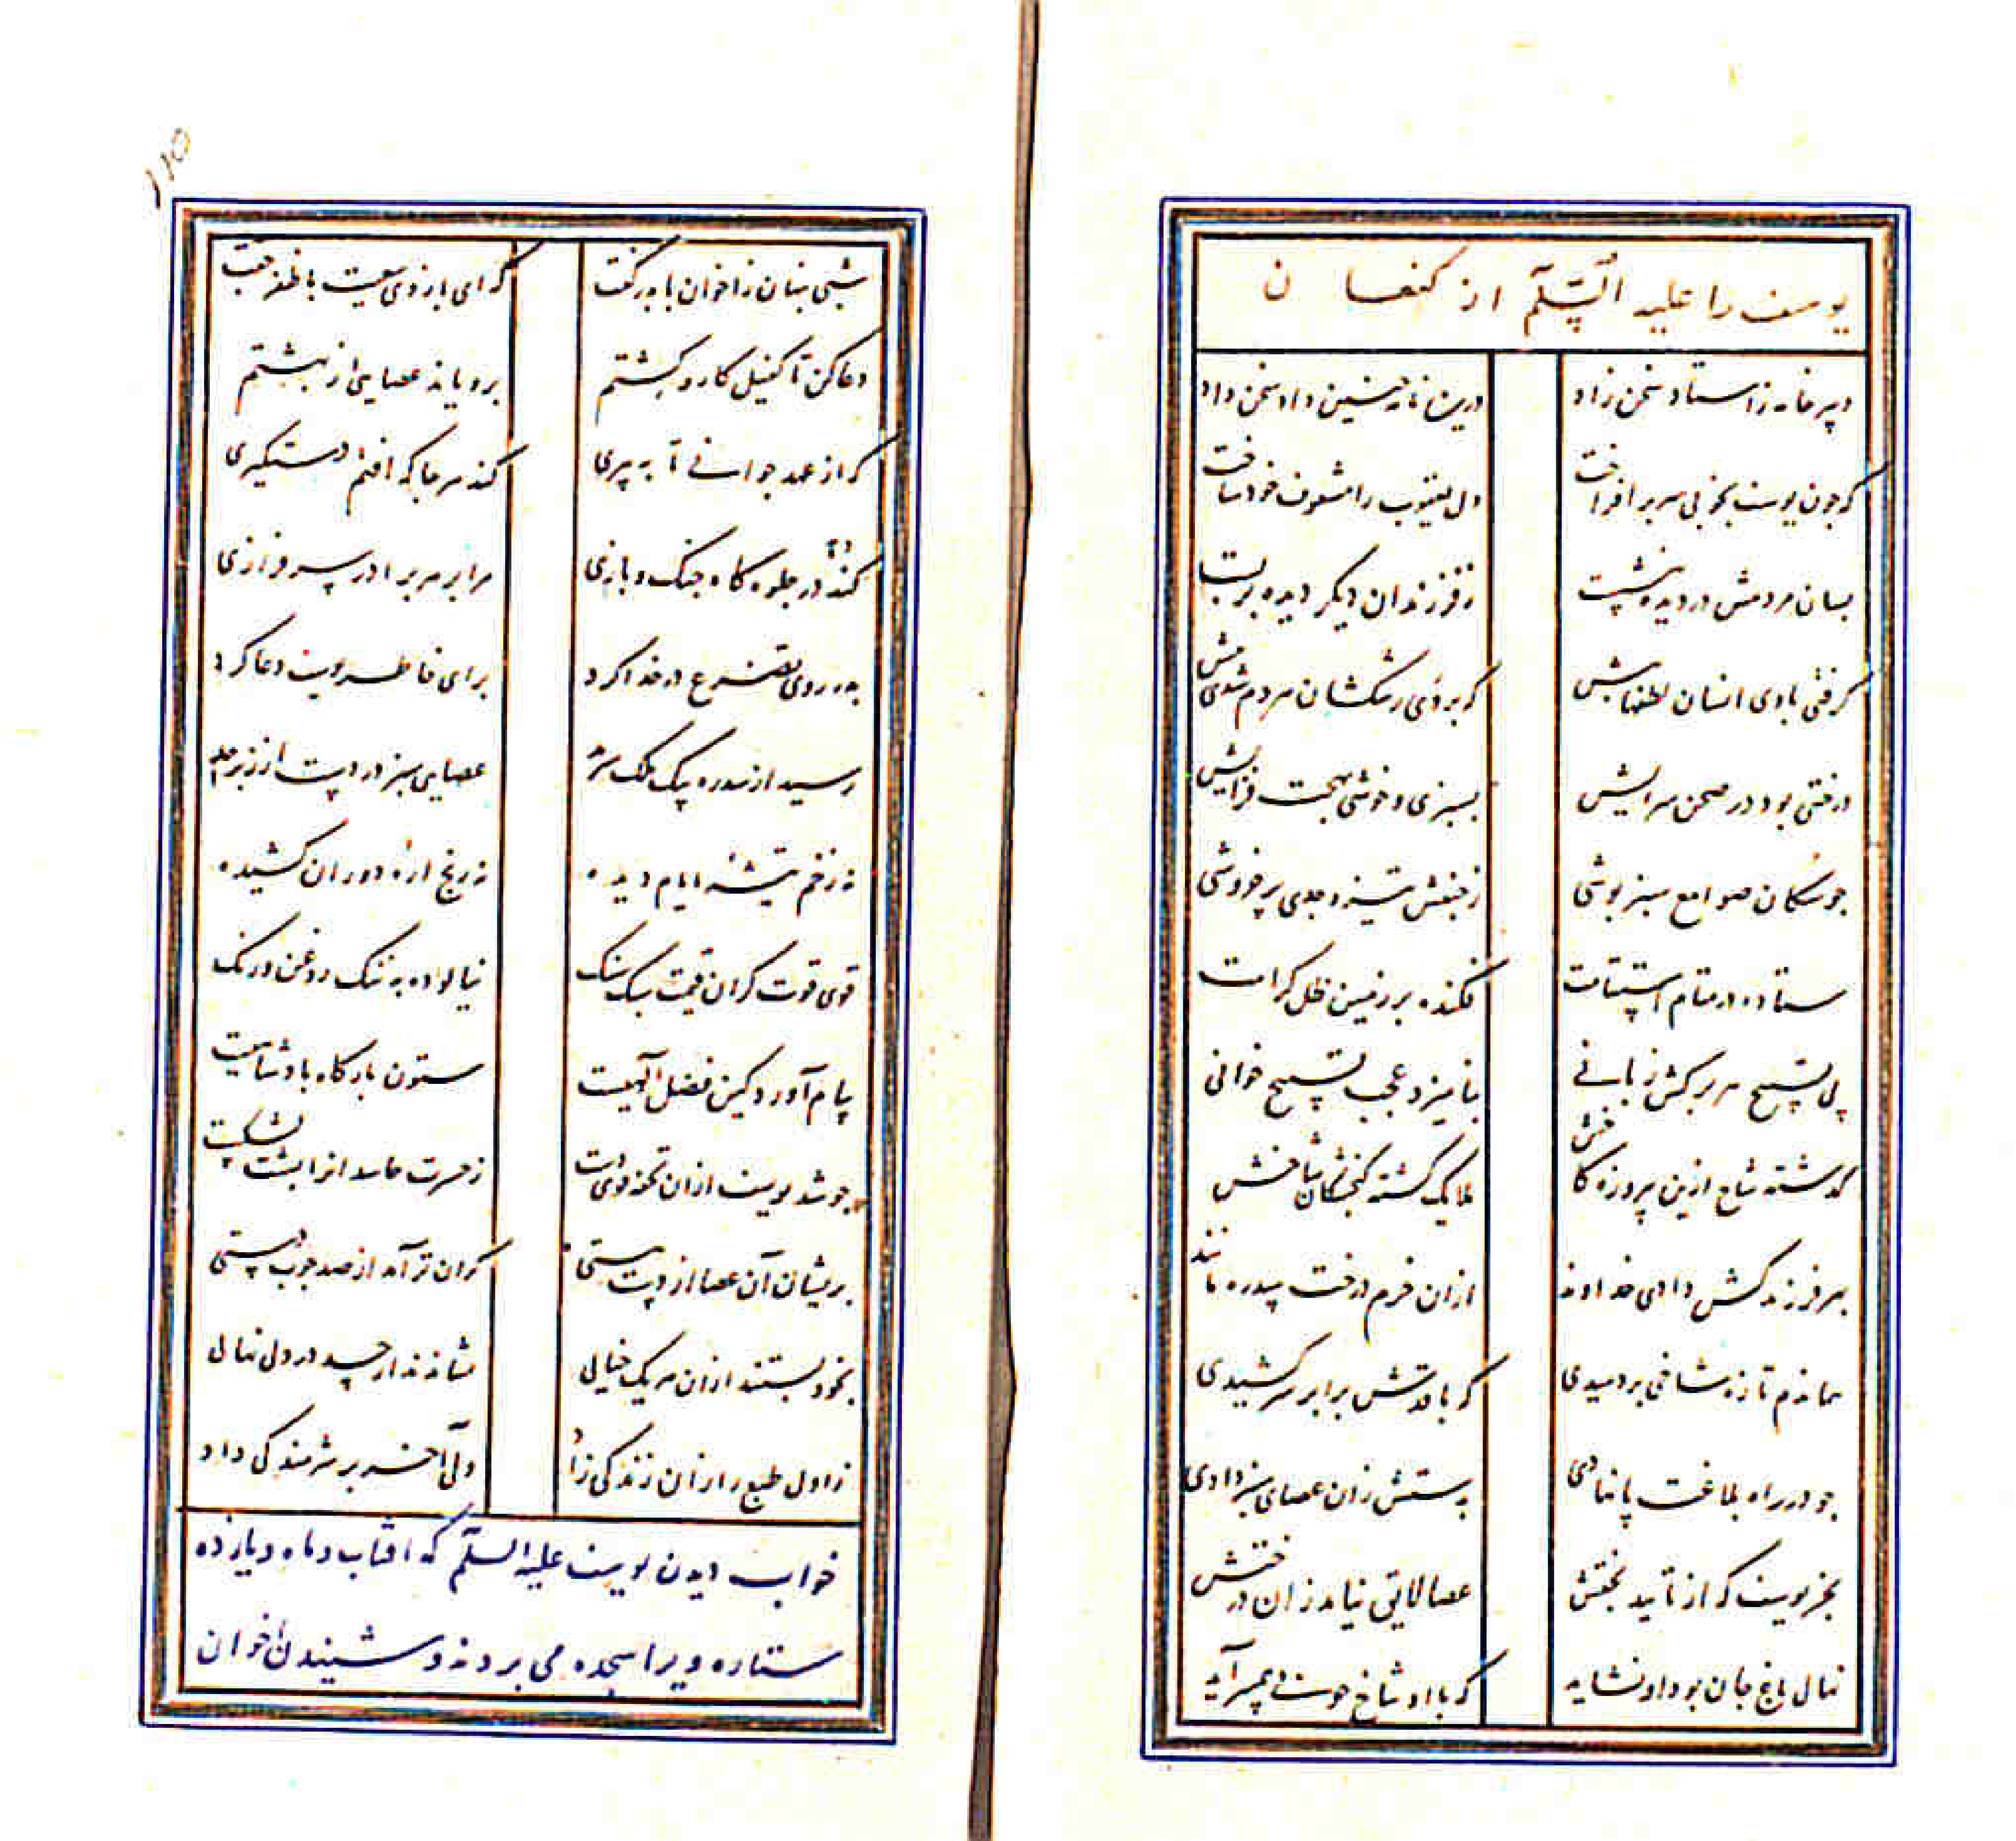 یوسف را علیه السّلام از کنعان
دبیر خامه ز استاد سخن زاد درین نامه چنین داد سخن داد
که چون یوسف بخوبی سر برافراخت دل یعقوب را مشعوف خود ساخت
بسان مردمش در دیده بنشست ز فرزندان دیگر دیده بربست
گرفتی با وی انسان لطفهایش که بردی رشکشان مردم شدی بیش
درختی بود در صحن سرایش بسبزی و خوشی بهجت فزایش
چو سکان صوامع سبزپوشی ز جنبش تیزوجدی پرخروشی
ستاده در مقام استقامت فکنده بر زمین ظل کرامت
پی تسبیح هر برگش زبانی بنامیزد عجب تسبیح خوانی
گذشته شاخ ازین پیروزه کاخش ملایک گشته گنجشکان شاخش
بهر فرزند کش دادی خداوند ازان خرم درخت سدره مانند
هماندم تازه شاخی بردمیدی که با قدش برابر سر کشیدی
چو در راه بلاغت پا نهادی بدستش زان عصای سبز دادی
بجز یوسف که از تأیید بختش عصا لایق نیامد زان درختش
نهال باغ جان بود او نشاید که با او شاخ چوبی همسر آید
۱۱۵
شبی پنهان ز اخوان با پدر گفت که ای بازوی سعیت با ظفر جفت
دعا کن تا کفیل کار و کشتم برویاند عصایی از بهشتم
که از عهد جوانی تا به پیری کند هر جا که افتم دستگیری
دهد در جلوه گاه جنگ و بازی مرا بر هر برادر سرفرازی
پدر روی تضرع در خدا کرد برای خاطر یوسف دعا کرد
رسید از سدره پیک ملک سرمد عصایی سبز در دست از زبرجد
نه زخم تیشه ایام دیده نه رنج اره دوران کشیده
قوی قوت گران قیمت سبک سنگ نیالوده به ننگ روغن و رنگ
پیام آورد کین فضل الهیست ستون بارگاه پادشاهیست
چو شد یوسف ازان تحفه قوی دست ز حسرت حاسد انرا پشت بشکست
بریشان آن عصا از دست سستی گران تر آمد از صد چوب دستی
بخود بستند ازان هر یک خیالی نشاندند از حسد در دل نهالی
ز اول طبع را زان زندگی زاد ولی آخر بر شرمندگی داد
خواب دیدن یوسف علیه السلام که افتاب و ماه و یازده
ستاره ویرا سجده می بردند و شنیدن اخوان